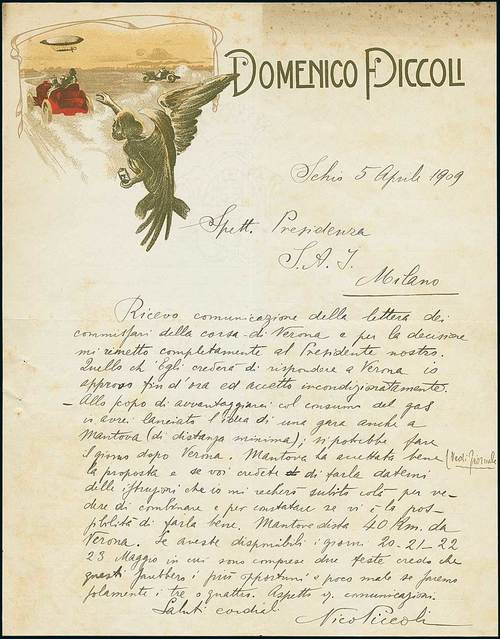 DOMENICO PICCOLI
Schio 5 Aprile 1909
Spett. Presidenza
S. A. I.
Milano
Ricevo comunicazione della lettera dei
commissari della corsa di Verona e per la decisione
mi rimetto completamente al Presidente nostro.
Quello ch'Egli crederà di rispondere a Verona io
approvo fin d'ora ed accetto incondizionatamente.
– Allo scopo di avvantaggiarci col consumo del gas
io avrei lanciato l'idea di una gara anche a
Mantova (di distanza minima); si potrebbe fare
il giorno dopo Verona. Mantova ha accettato bene (Vedi giornale
la proposta e se voi credete di farla datemi
delle istruzioni che io mi recherò subito colà, per ve-
dere di combinare e per constatare se vi è la pos-
sibilità di farla bene. Mantova dista 40 Km. da
Verona. Se aveste disponibili i giorni 20-21-22
23 Maggio in cui sono comprese due feste credo che
questi sarebbero i più opportuni e poco male se saremo
solamente i tre o quattro. Aspetto comunicazioni.
Saluti cordiali
Nico Piccoli